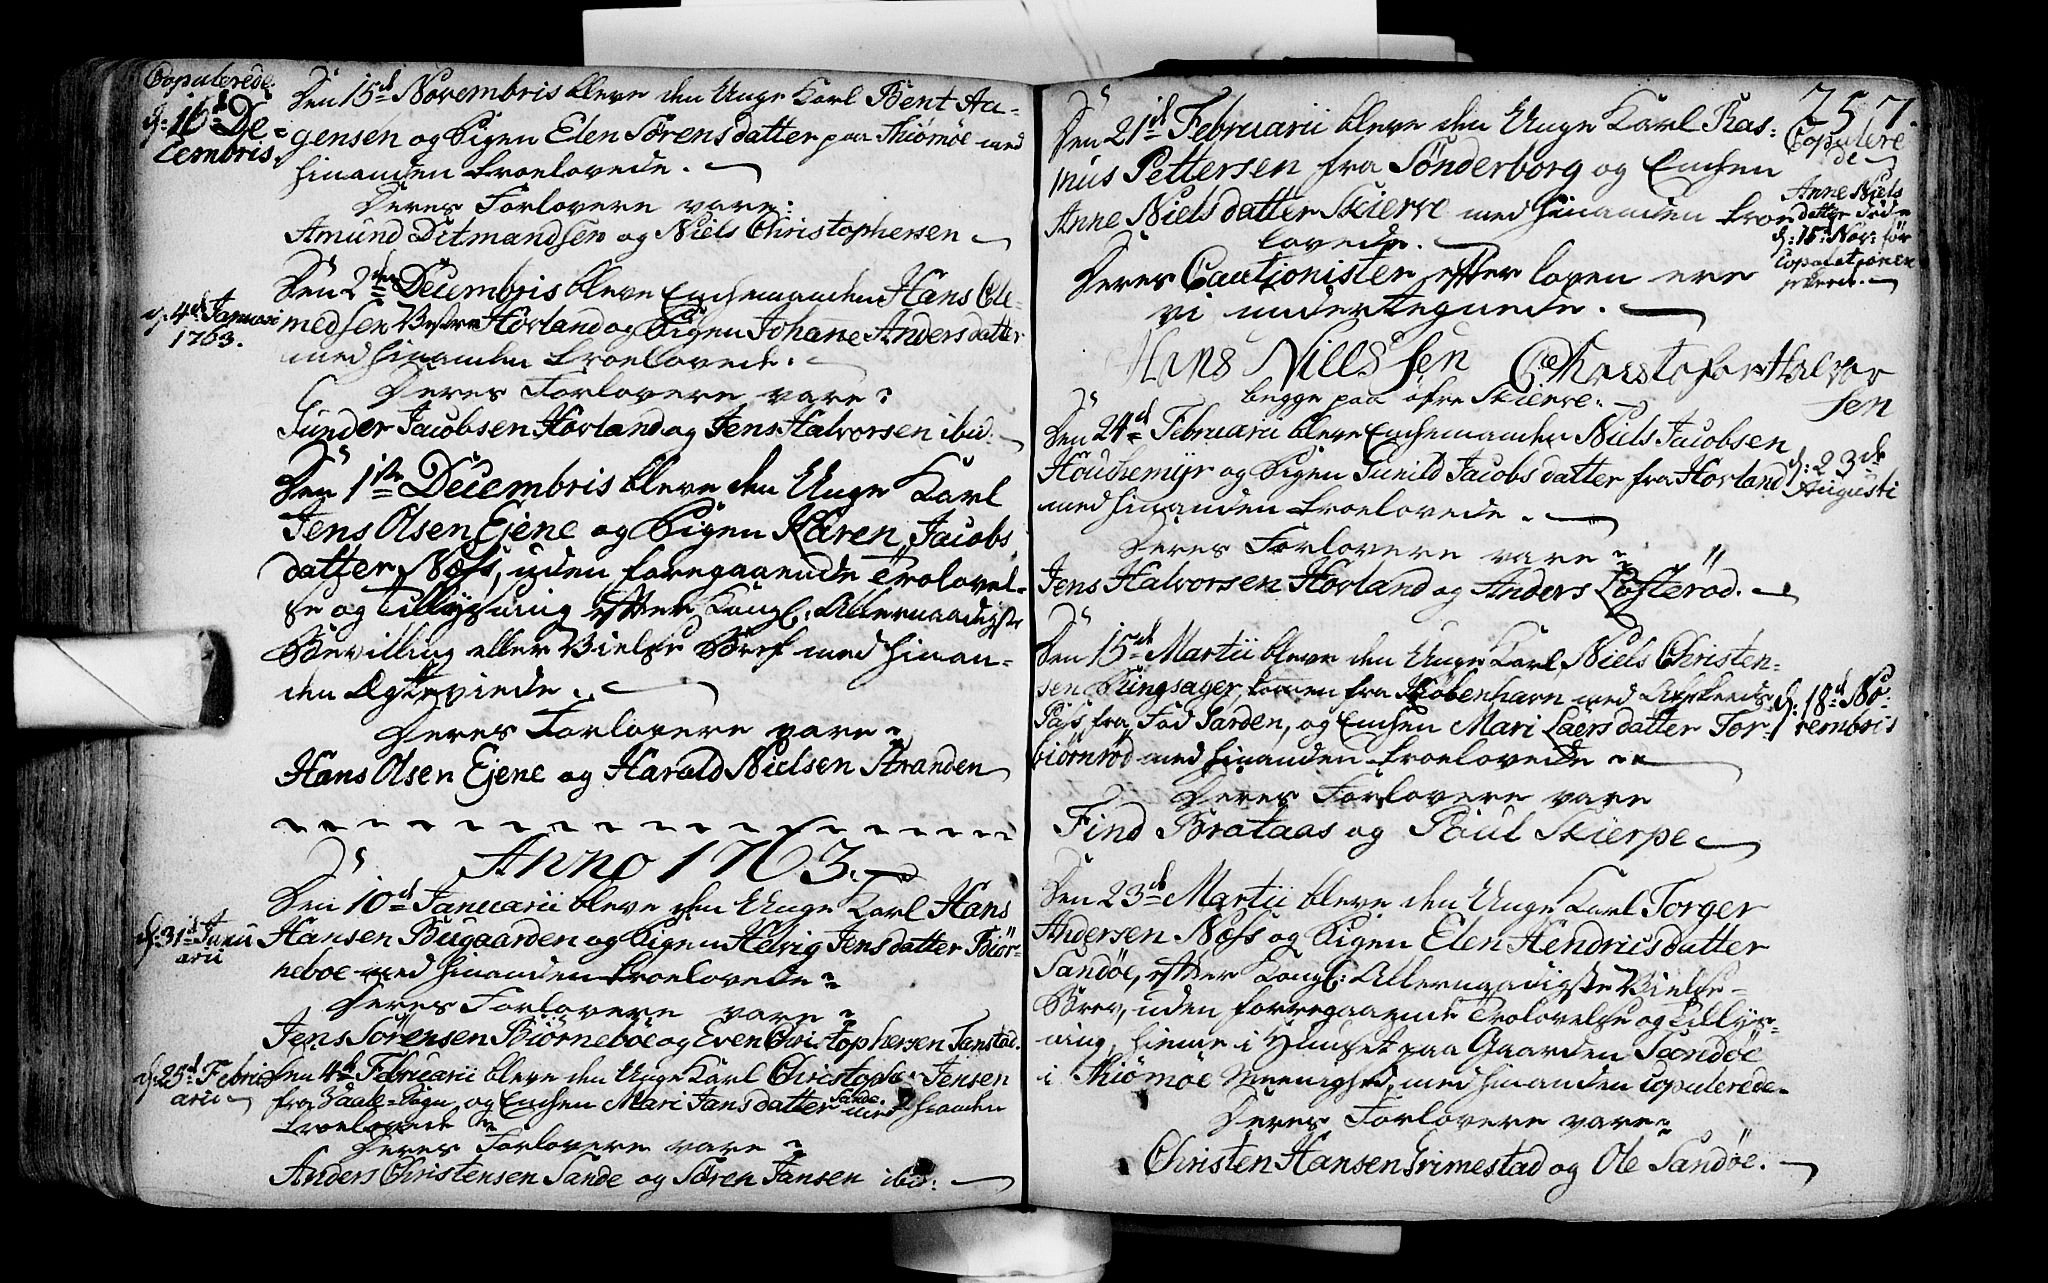 Copulerede.
d: 16d De-
cembris.
Den 15d Novembris bleve den Unge Karl Bent Aa-
gensen og Pigen Elen Sørensdatter paa Thiømøe med
hinanden troelovede.
Deres Forlovere vare:
Amund Ditmandsen og Niels Christophersen
d. 4d Januari
1763.
Den 2den Decembris bleve Enchemanden Hans Cle-
medsen Vestre Hovland og Pigen Johane Andersdatter
med hinanden troelovede.
Deres Forlovere vare:
Gunder Jacobsen Hovland og Jens Halvorsen ibid:
Den 1ste Decembris bleve den Unge Karl
Jens Olsen Ejene og Pigen Karen Jacobs
datter Næss, uden foregaaende Trolovel-
se og Tillysning efter Kongl: Allernaadigste
Bevilling eller Vielse Bref med hinan-
den Ægteviede.
Deres Forlovere vare:
Hans Olsen Ejene og Harald Nielsen Stranden
Anno 1763.
d. 31d Janu
arii
Den 10d Januarii bleve den Unge Karl Hans
Hansen Bugaarden og Pigen Helvig Jensdatter Biør-
neboe med hinanden troelovede:
Deres Forlovere vare:
Jens Sørensen Biørneboe og Even Christophersen Tanstad.
d. 25d Febru
arii
Den 4d Februarii bleve den Unge Karl Christopher Jensen
fra Saale-Sogn, og Enchen Mari Jansdatter Sande. med hinanden
troelovede
Deres Forlovere vare:
Anders Christensen Sande og Søren Jansen ibid:
757.
Copulere
de
Den 21d Februarii bleve den Unge Karl Ras-
mus Pettersen fra Sønderborg og Enchen
Anne Nielsdatter Skierve med hinanden troe
lovede.
Anne Niels
datter døde
d: 15 Nov: før
Copulationen
skeede.
Deres Cautionister efter loven ere
vi undertegnede.
Hans Nillssen Christofer Halvor
sen
begge paa øfre Skierve.
Den 24d Februarii bleve Enchemanden Niels Jacobsen
Houchemyr og Pigen Gunild Jacobsdatter fra Hovland
med hinanden troelovede.
d: 23de
Augusti
Deres Forlovere vare:
Jens Halvorsen Hovland og Anders Løfterød.
Den 15d Martii bleve den Unge Karl Niels Christen-
sen Ringsager, komen fra Kiøbenhavn med Afskeeds
Pas fra Fod Garden, og Enchen Mari Laersdatter Tor-
biørnrød med hinanden troelovede
d. 18d No-
vembris
Deres Forlovere vare
Find Brataas og Poul Skierpe
Den 23d Martii bleve den Unge Karl Torger
Andersen Næss og Pigen Elen Hendricsdatter
Sandøe, efter Kongl: Allernaadigste Vielse-
Brev, uden forregaaende Trolovelse og Tillys-
ning, hieme i Huuset paa Gaarden Sandøe
i Thiømøe Meenighed, med hinanden copulerede.
Deres Forlovere vare:
Christen Hansen Grimestad og Ole Sandøe.